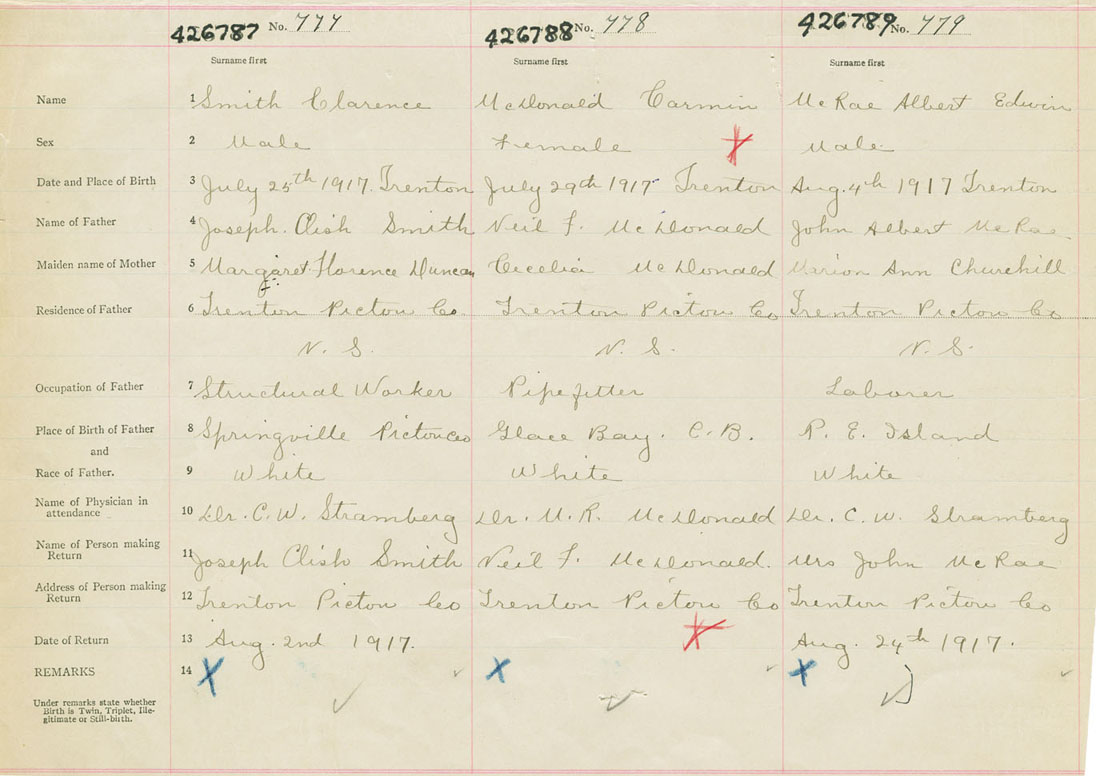 426787 No. 777 426788 No. 778 426789 No. 779
Surname first Surname first Surname first
Name 1 Smith Clarence McDonald Carmin McRae Albert Edwin
Sex 2 Male Female Male
Date and Place of Birth 3 July 25th 1917. Trenton July 29th 1917 Trenton Aug. 4th 1917 Trenton
Name of Father 4 Joseph Clish Smith Neil F. McDonald John Albert McRae
Maiden name of Mother 5 Margaret Florence Duncan Cecelia McDonald Marion Ann Churchill
Residence of Father 6 Trenton Pictou Co. Trenton Pictou Co Trenton Pictou Co
N. S. N. S. N. S.
Occupation of Father 7 Structural Worker Pipefitter Laborer
Place of Birth of Father 8 Springville Pictou Co Glace Bay. C. B. P. E. Island
and
Race of Father. 9 White White White
Name of Physician in
attendance 10 Dr. C. W. Stramberg Dr. M. R. McDonald Dr. C. W. Stramberg
Name of Person making
Return 11 Joseph Clish Smith Neil F. McDonald. Mrs John McRae
Address of Person making
Return 12 Trenton Pictou Co Trenton Pictou Co Trenton Pictou Co
Date of Return 13 Aug. 2nd 1917. Aug. 24th 1917.
REMARKS 14
Under remarks state whether
Birth is Twin, Triplet, Ille-
gitimate or Still-birth.